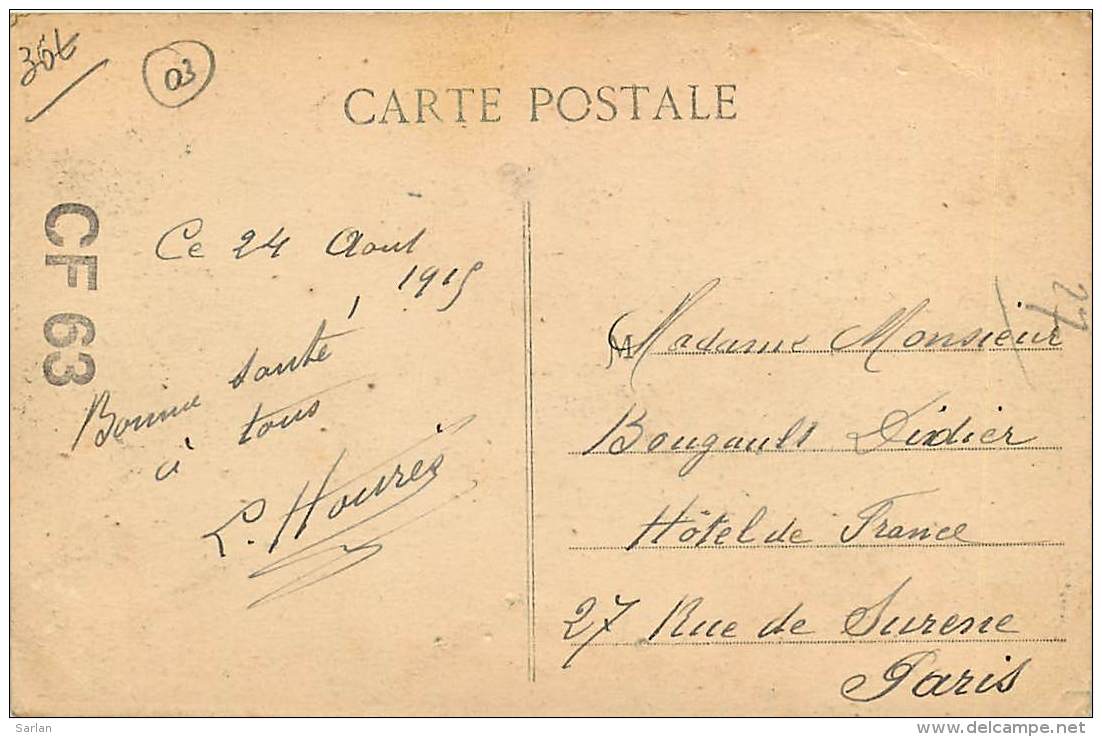 35€
03
CARTE POSTALE
CF 63
Ce 24 Aout
1915
Bonne santé
à tous
L. Houriez
27
Madame Monsieur
Bougault Didier
Hôtel de France
27 Rue de Surene
Paris
Sarlan
www.delcampe.net